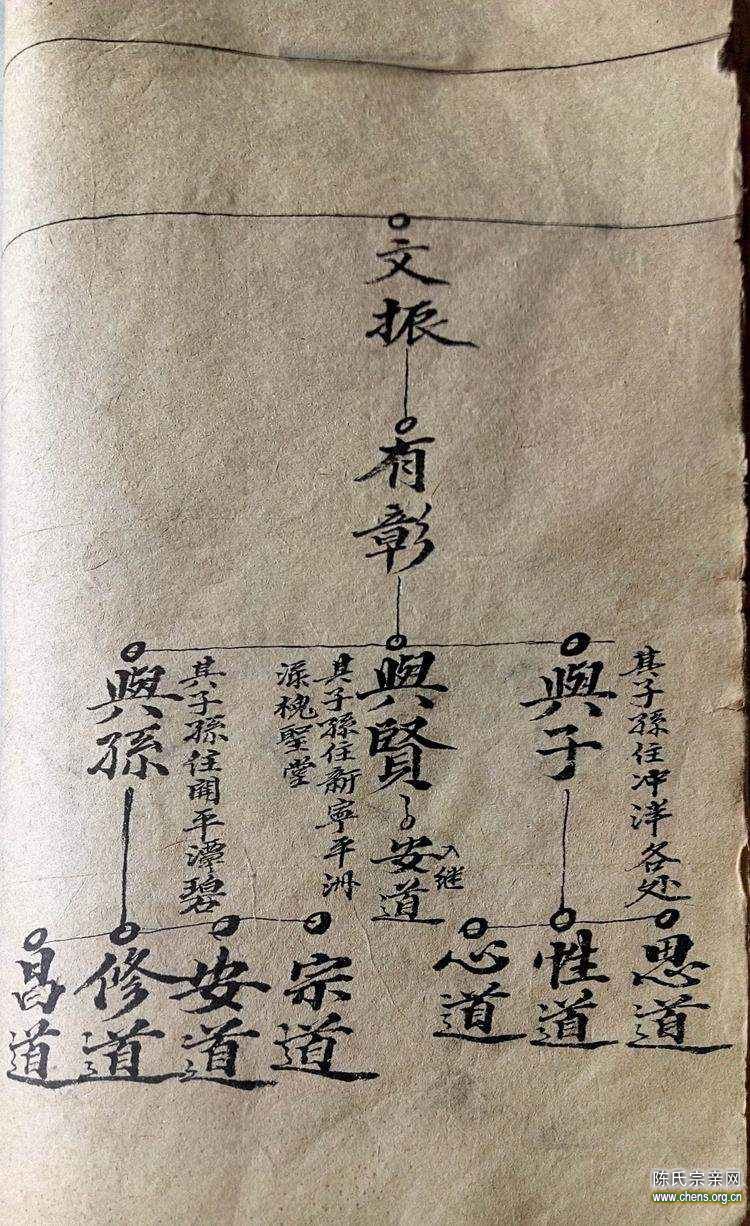 文振
有彰
與子
其子孫住冲洋各处
與賢
其子孫住新寧平洲
深槐聖堂
安道
入继
與孫
其子孫住開平潭碧
思道
性道
心道
宗道
安道
修道
昌道
陈氏宗亲网
www.chens.org.cn